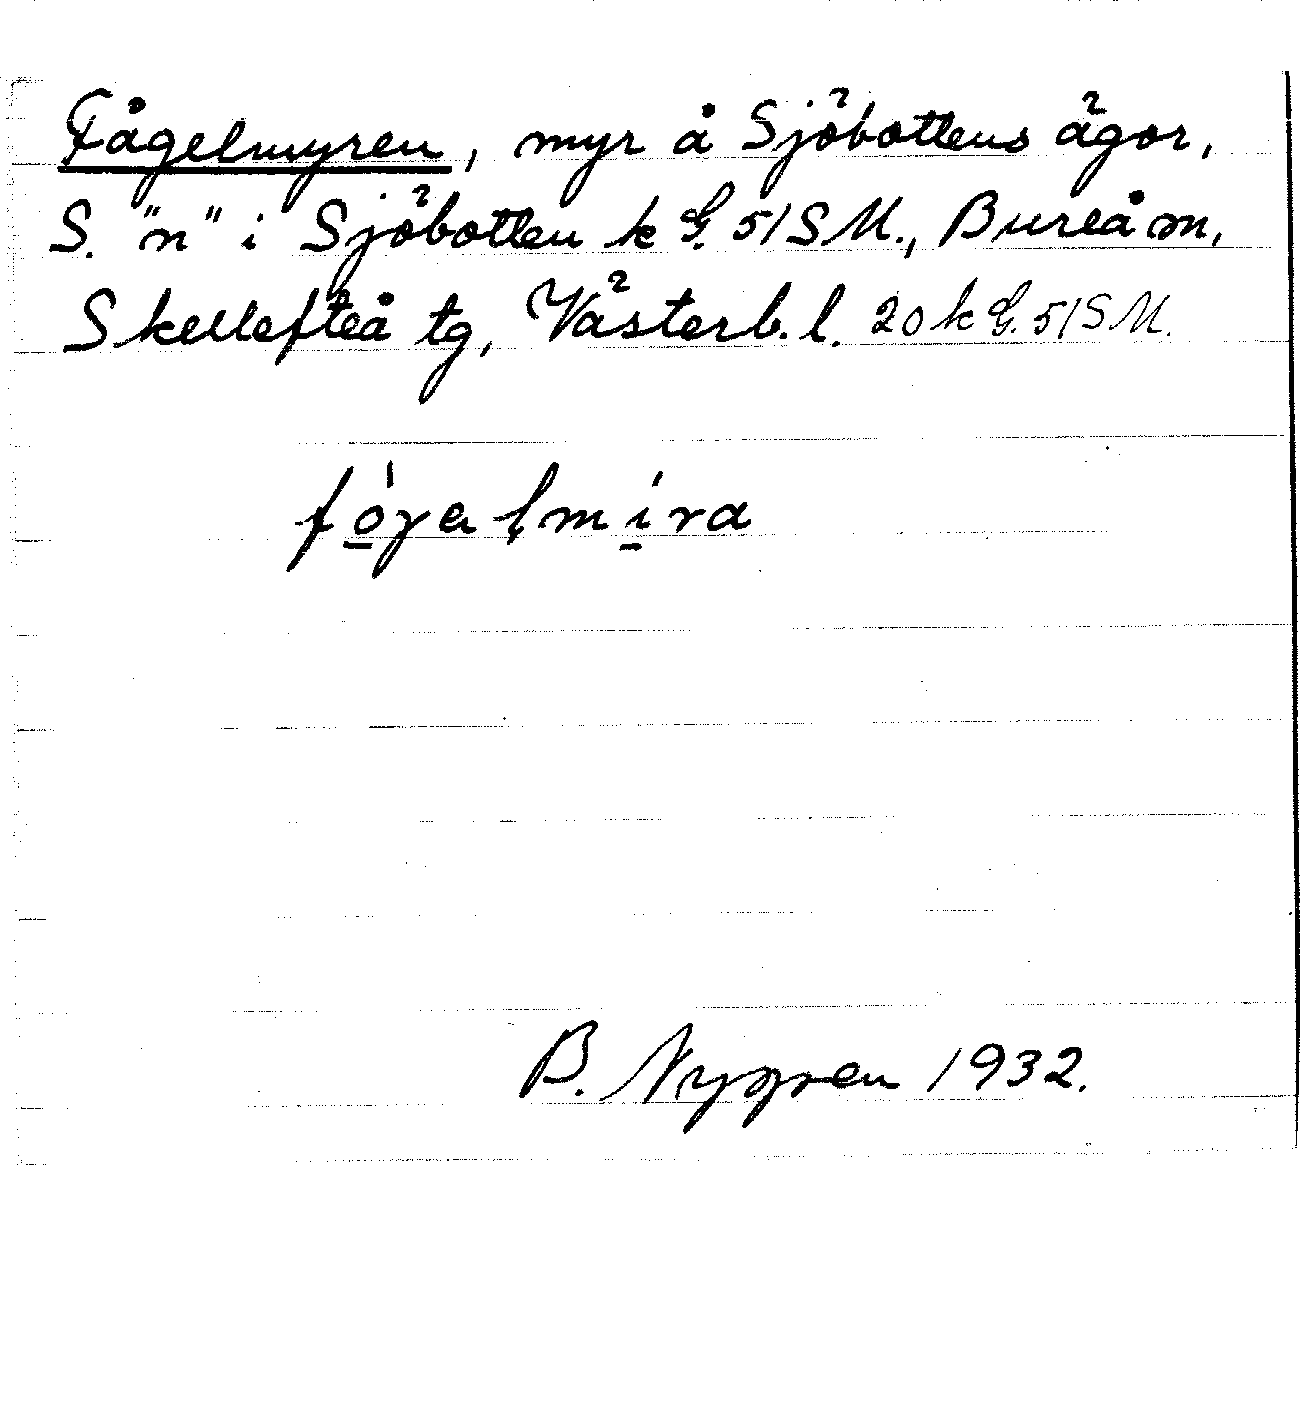 Fågelmyren, myr å Sjöbottens ägor,
S. "n" i Sjöbotten k G. 51 S M., Bureå m,
Skellefteå tg, Västerb. l. 20 k G. 51 S M.
B. Nygren 1932.